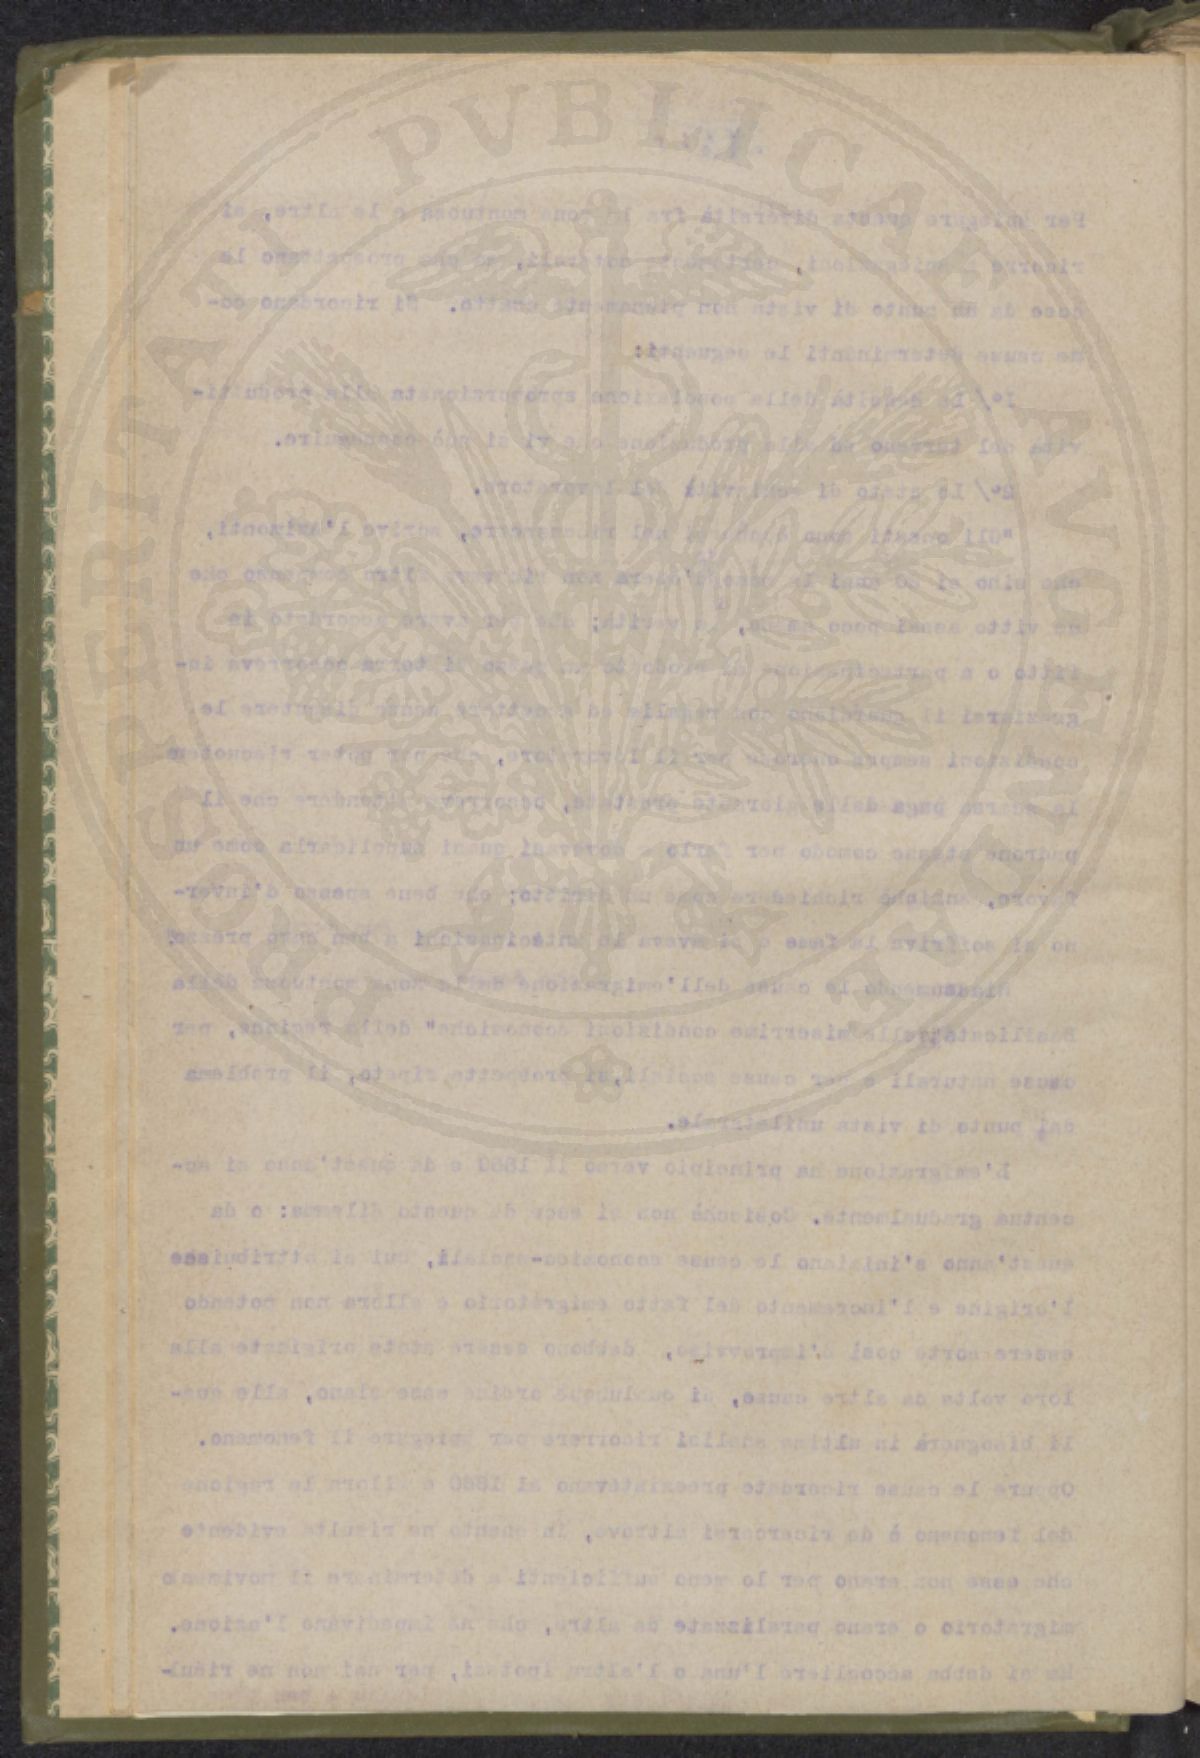 Per spiegare questa diversità fra la zona montuosa e le altre, si
ricorre a spiegazioni, certamente naturali, ma che prospettano le
cose da un punto di vista non pienamente esatto. Si ricordano co-
me cause determinanti le seguenti:
1°/ La densità della popolazione sproporzionata alla produtti-
vità del terreno ed alla produzione che vi si può conseguire.
2°/ Lo stato di schiavitù del lavoratore.
"Gli onesti sono nel riconoscere, scrive l'Azimonti,
che sino ai 20 anni la mano d'opera non altro compenso che
un vitto assai poco in verità; che per avere accordato in
fitto o a partecipazione di prodotto un pezzo di terra occorreva in-
graziarsi il guardiano con regalie ed ammettere senza discutere le
condizioni sempre onerose per il lavoratore, che per poter riscuotere
la scarsa paga delle giornate prestate, occorreva attendere che il
padrone stesse comodo per farlo e dovevasi quasi supplicarla come un
favore, anziché richiedere come un diritto; che bene spesso d'inver-
no si soffriva la fame o si aveva in anticipazioni a ben caro prezzo"
Riassumendo le cause dell'emigrazione della zona montuosa della
Basilicata, nelle "miserrime condizioni economiche" della regione, per
cause naturali e per cause sociali, si prospetta, ripeto, il problema
dal punto di vista unilaterale.
L'emigrazione ha principio verso il 1860 e da quest'anno si ac-
centua gradualmente. Cosicché non si esce da questo dilemma: o da
quest'anno s'iniziano le cause economico-sociali, cui si attribuisce
l'origine e l'incremento del fatto emigratorio e allora non potendo
essere sorte così d'improvviso, debbono essere state originate alla
loro volta da altre cause, di qualunque ordine esse siano, alle qua-
li bisognerà in ultima analisi ricorrere per spiegare il fenomeno.
Oppure le cause ricordate preesistevano al 1860 e allora la ragione
del fenomeno è da ricercarsi altrove, in quanto ne risulta evidente
che esse non erano per lo meno sufficienti a determinare il movimento
migratorio o erano paralizzate da altre, che ne impedivano l'azione.
Ma si debba accogliere l'una o l'altra ipotesi, per noi non ne risul-
PROSPERITATI PVBLICAE AVGENDAE